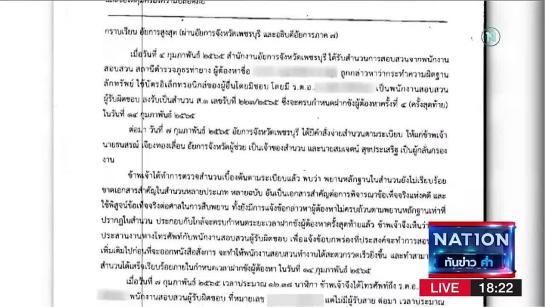 กราบเรียน อัยการสูงสุด (ผ่านอัยการจังหวัดเพชรบุรี และอธิบดีอัยการภาค ๗)
เมื่อวันที่ ๔ กุมภาพันธ์ ๒๕๖๕ สำนักงานอัยการจังหวัดเพชรบุรี ได้รับสำนวนการสอบสวนจากพนักงาน
สอบสวน สถานีตำรวจภูธรท่ายาง ผู้ต้องหาชื่อ ถูกกล่าวหาว่ากระทำความผิดฐาน
ลักทรัพย์ ใช้บัตรอิเล็กทรอนิกส์ของผู้อื่นโดยมิชอบ โดยมี ร.ต.อ. เป็นพนักงานสอบสวน
ผู้รับผิดชอบ ลงรับเป็นสำนวน ส.๑ เลขรับที่ ซึ่งจะครบกำหนดฝากขังผู้ต้องหาครั้งที่ ๔ (ครั้งสุดท้าย)
ในวันที่ ๑๔ กุมภาพันธ์ ๒๕๖๕
ต่อมา วันที่ ๗ กุมภาพันธ์ ๒๕๖๕ อัยการจังหวัดเพชรบุรี ได้มีคำสั่งจ่ายสำนวนตามระเบียบ ให้แก่ข้าพเจ้า
นายธนสรณ์ เจียงทองเลื่อน อัยการจังหวัดผู้ช่วย เป็นเจ้าของสำนวน และนายสมเจตน์ สุขประเสริฐ เป็นผู้กลั่นกรอง
งาน
ข้าพเจ้าได้ทำการตรวจสำนวนเบื้องต้นตามระเบียบแล้ว พบว่า พยานหลักฐานในสำนวนยังไม่เรียบร้อย
ขาดเอกสารสำคัญในสำนวนหลายประเภท หลายฉบับ อันเป็นเอกสารสำคัญต่อการพิจารณาข้อเท็จจริงแห่งคดี และ
ใช้พิสูจน์ข้อเท็จจริงต่อศาลในการสืบพยาน ทั้งยังมีการแจ้งข้อกล่าวหาผู้ต้องหาไม่ครบถ้วนตามพยานหลักฐานเท่าที่
ปรากฏในสำนวน ประกอบกับใกล้จะครบกำหนดระยะเวลาฝากขังผู้ต้องหาครั้งสุดท้ายแล้ว ข้าพเจ้าจึงเห็นว่า
ประสานงานทางโทรศัพท์กับพนักงานสอบสวนผู้รับผิดชอบ เพื่อแจ้งข้อบกพร่องที่ประสงค์จะทำการสอบ
เพิ่มเติมไปก่อนที่จะออกหนังสือสั่งการ จะทำให้พนักงานสอบสวนทำงานได้สะดวกรวดเร็วยิ่งขึ้น และทำสามา
สำนวนได้เสร็จเรียบร้อยภายในกำหนดเวลาฝากขังผู้ต้องหา ในวันที่ ๑๔ กุมภาพันธ์ ๒๕๖๕
เมื่อวันที่ ๗ กุมภาพันธ์ ๒๕๖๕ เวลาประมาณ นาฬิกา ข้าพเจ้าจึงได้โทรศัพท์ถึง ร.ต.อ.
พนักงานสอบสวนผู้รับผิดชอบ ที่หมายเลข แต่ไม่มีผู้รับสาย ต่อมา เวลาประมาณ
NATION
ทันข่าว ค่ำ
LIVE 18:22